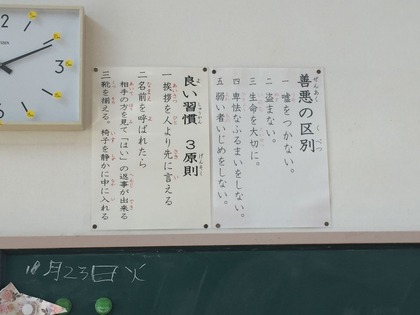 善悪の区別
ぜんあく
くべつ
一 嘘をつかない。
二 盗まない。
三 生命を大切に。
四 卑怯なふるまいをしない。
五 弱い者いじめをしない。
良い習慣 3原則
よ
しゅうかん
げんそく
一 挨拶を人より先に言える
二 名前を呼ばれたら
相手の方を見て「はい」の返事が出来る
三 靴を揃える。椅子を静かに中に入れる
10月23日火